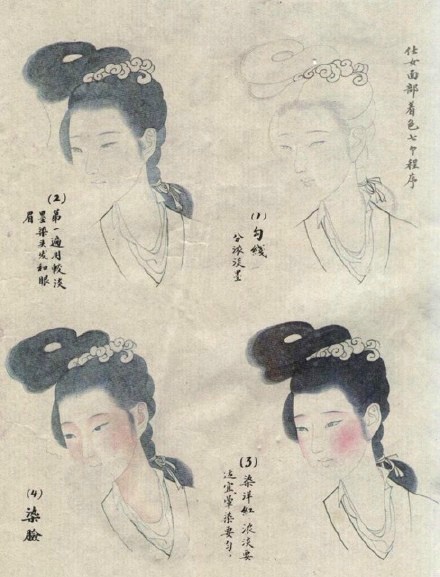 仕女面部着色七个程序
(1)
勾线
分浓淡墨
(2)
第一遍用较淡
墨染头发和眼
眉
(3)
染洋红浓淡要
适宜晕染要匀。
(4)
染脸